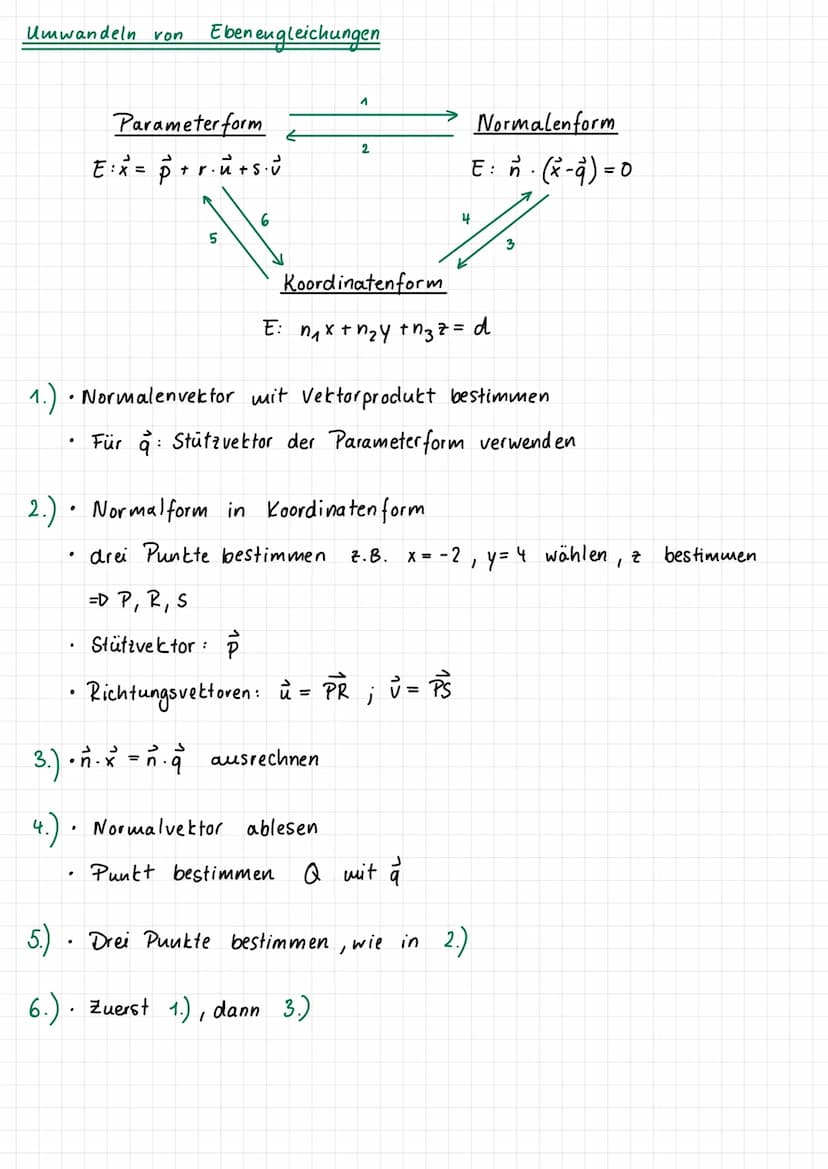 Umwandeln von Ebenengleichungen
1
Parameterform Normalenform
2
E: x⃗ = p⃗ + r · u⃗ + s · v⃗ E: n⃗ · (x⃗ - q⃗) = 0
6 4
5 3
Koordinatenform
E: n₁x + n₂y + n₃z = d
1.) · Normalenvektor mit Vektorprodukt bestimmen
· Für q⃗: Stützvektor der Parameterform verwenden
2.) · Normalform in Koordinatenform
· drei Punkte bestimmen z.B. x = -2, y = 4 wählen, z bestimmen
⇒ P, R, S
· Stützvektor: p⃗
· Richtungsvektoren: u⃗ = P⃗R⃗ ; v⃗ = P⃗S⃗
3.) · n⃗ · x⃗ = n⃗ · q⃗ ausrechnen
4.) · Normalvektor ablesen
· Punkt bestimmen Q mit q⃗
5.) · Drei Punkte bestimmen, wie in 2.)
6.) · Zuerst 1.), dann 3.)